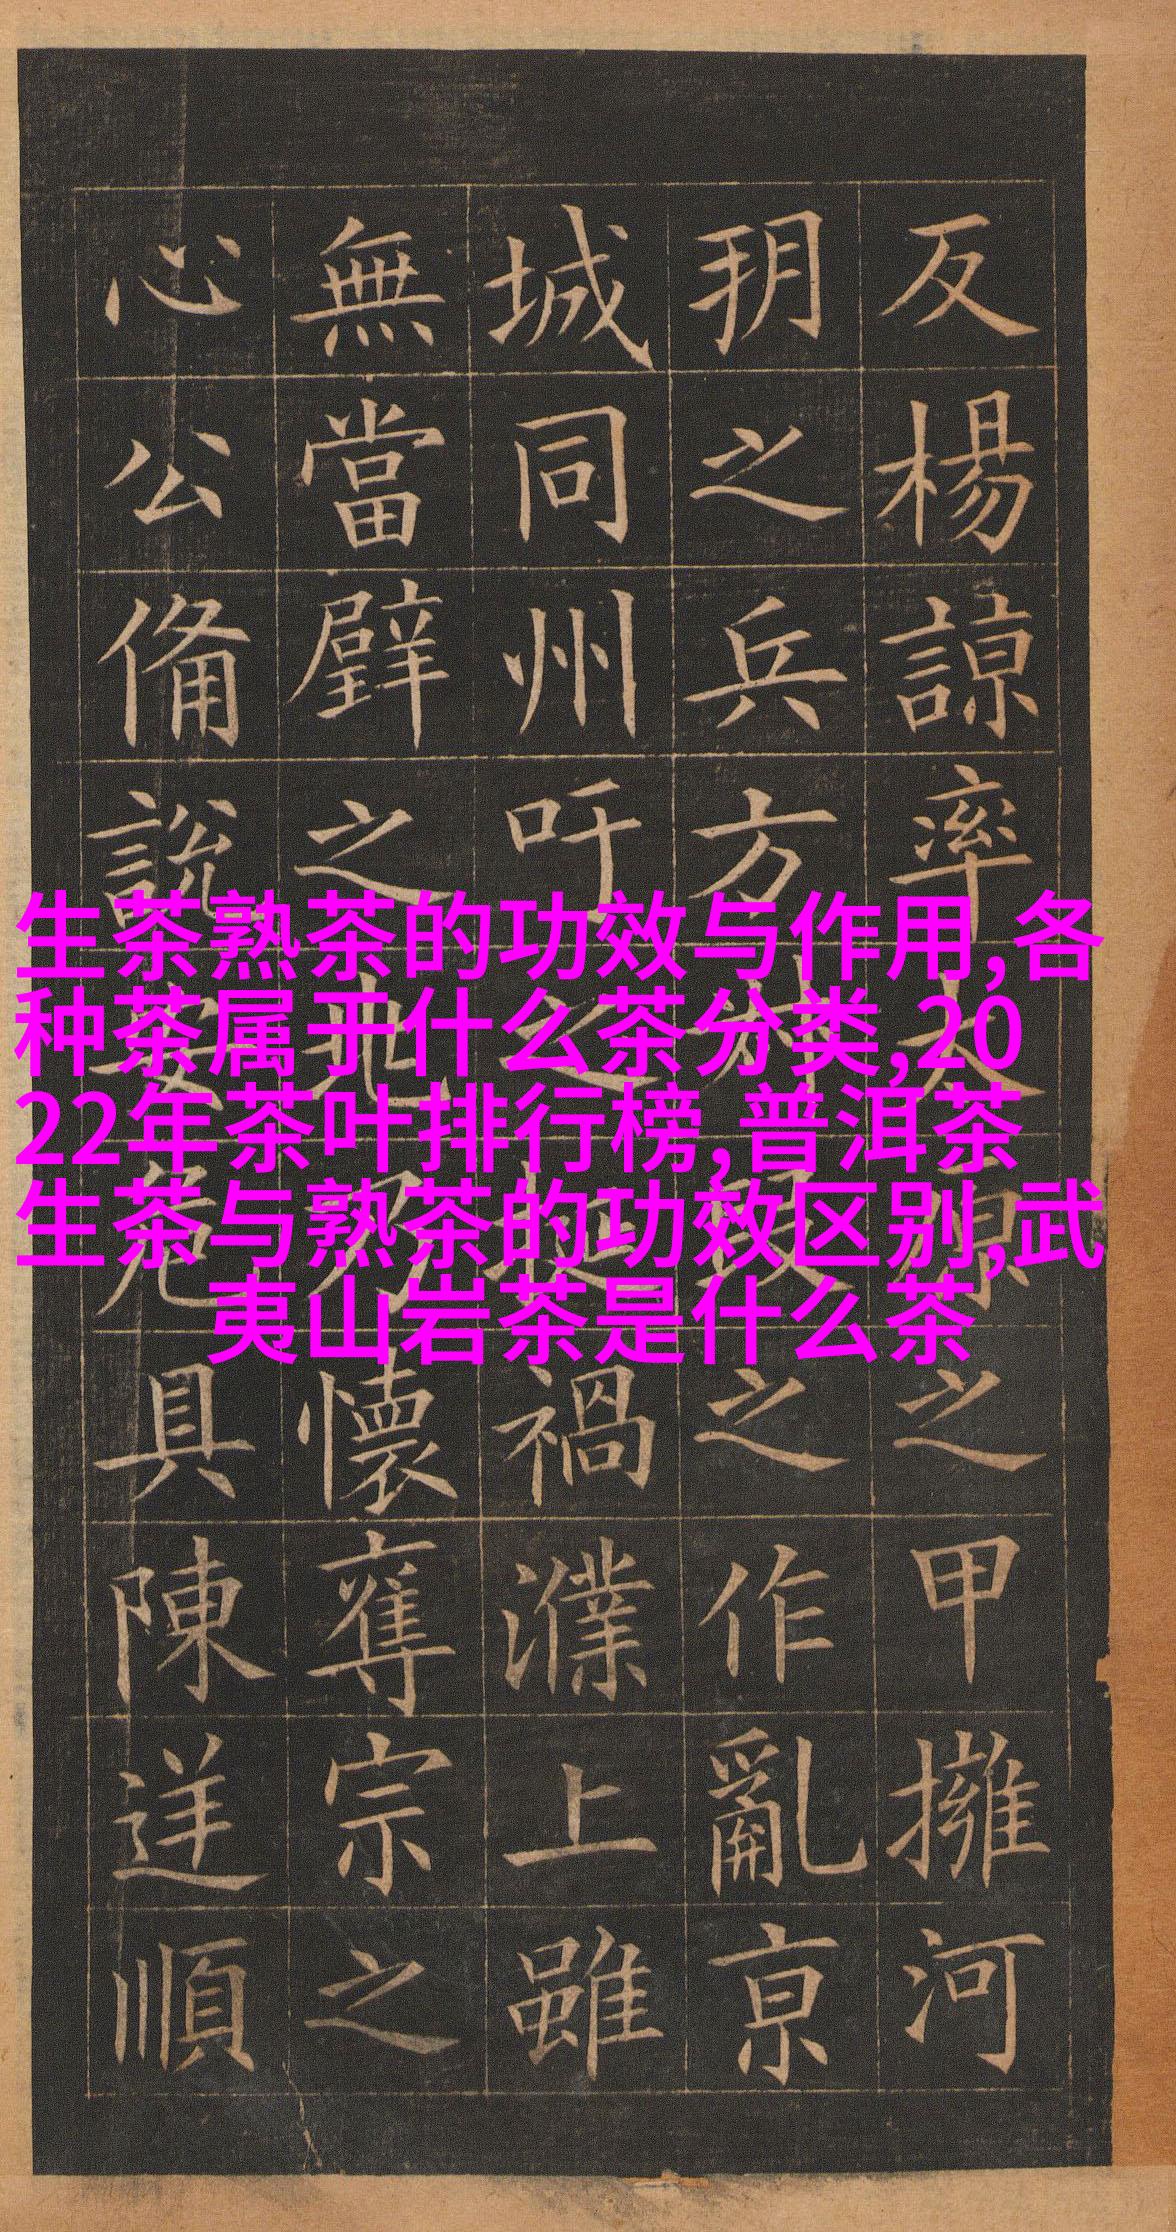 反楊諒率太原之甲擁河
朔之兵方叔段之作亂京
城同州吁之禍濮上雖
無當璧之兆乃懷奪宗之
心公俻說安危具陳逆順
生茶熟茶的功效与作用,各
种茶属于什么茶分类,20
22年茶叶排行榜,普洱茶
生茶与熟茶的功效区别,武
夷山岩茶是什么茶